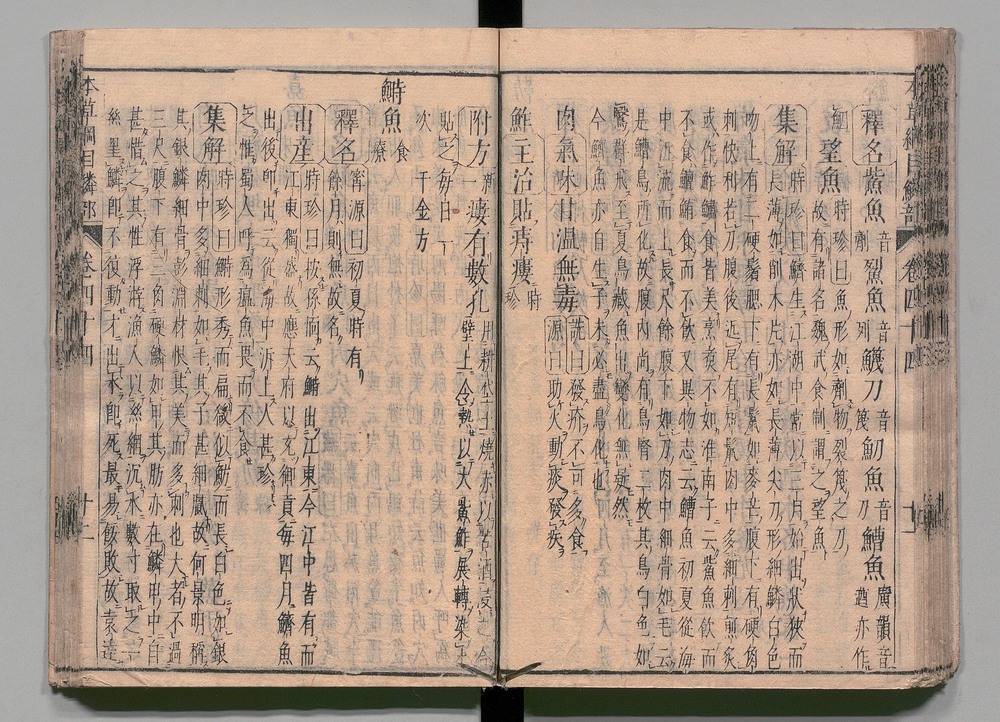 本草綱目鱗部 卷四十四 十一
釋名鮆魚音劑鮤魚音列鱴刀音篾魛魚音刀鰽魚廣韻音遒亦作
望魚時珍曰魚形如劑物裂篾之刀
故有諸名魏武食制謂之望魚
集解時珍曰鱭生江湖中常以三月始出狀狹而
長薄如削木片亦如長薄尖刀形細鱗白色
吻上有二硬鬚腮下有長鬛如麥芒腹下有硬角
刺快利若刀腹後近尾有短鬛肉中多細刺煎炙
或作鮓鱐食皆美烹煮不如淮南子云鮆魚飲而
不食鱣鮪食而不飲又異物志云鰽魚初夏從海
中泝流而上長尺餘腹下如刀肉中細骨如毛云
是鰽鳥所化故腹內尚有鳥腎二枚其鳥白色如
鷖群飛至夏鳥藏魚出變化無疑然
今鱭魚亦自生子未必盡鳥化也
肉氣味甘温無毒詵曰發疥不可多食源曰助火動痰發疾
鮓主治貼痔瘻時珍
附方新一瘻有數孔用耕垈土燒赤以苦酒浸之合
壁上令熱以大鮆鮓展轉染之
貼之每日一
次千金方
鰣魚食療
釋名甯源曰初夏時有
餘月則無故名
出產時珍曰按孫愐云鰣出江東今江中皆有而
江東獨盛故應天府以充御貢每四月鱭魚
出後即出云從海中泝上人甚珍
之惟蜀人呼爲瘟魚畏而不食
集解時珍曰鰣形秀而扁微似魴而長白色如銀
肉中多細刺如毛其子甚細膩故何景明稱
其銀鱗細骨彭淵材恨其美而多刺也大者不過
三尺腹下有三角硬鱗如甲其肪亦在鱗甲中自
甚惜之其性浮游漁人以絲網沉水數寸取之一
絲罣鱗即不復動才出水即死最易餒敗故袁達
本草綱目鱗部 卷四十四 十二